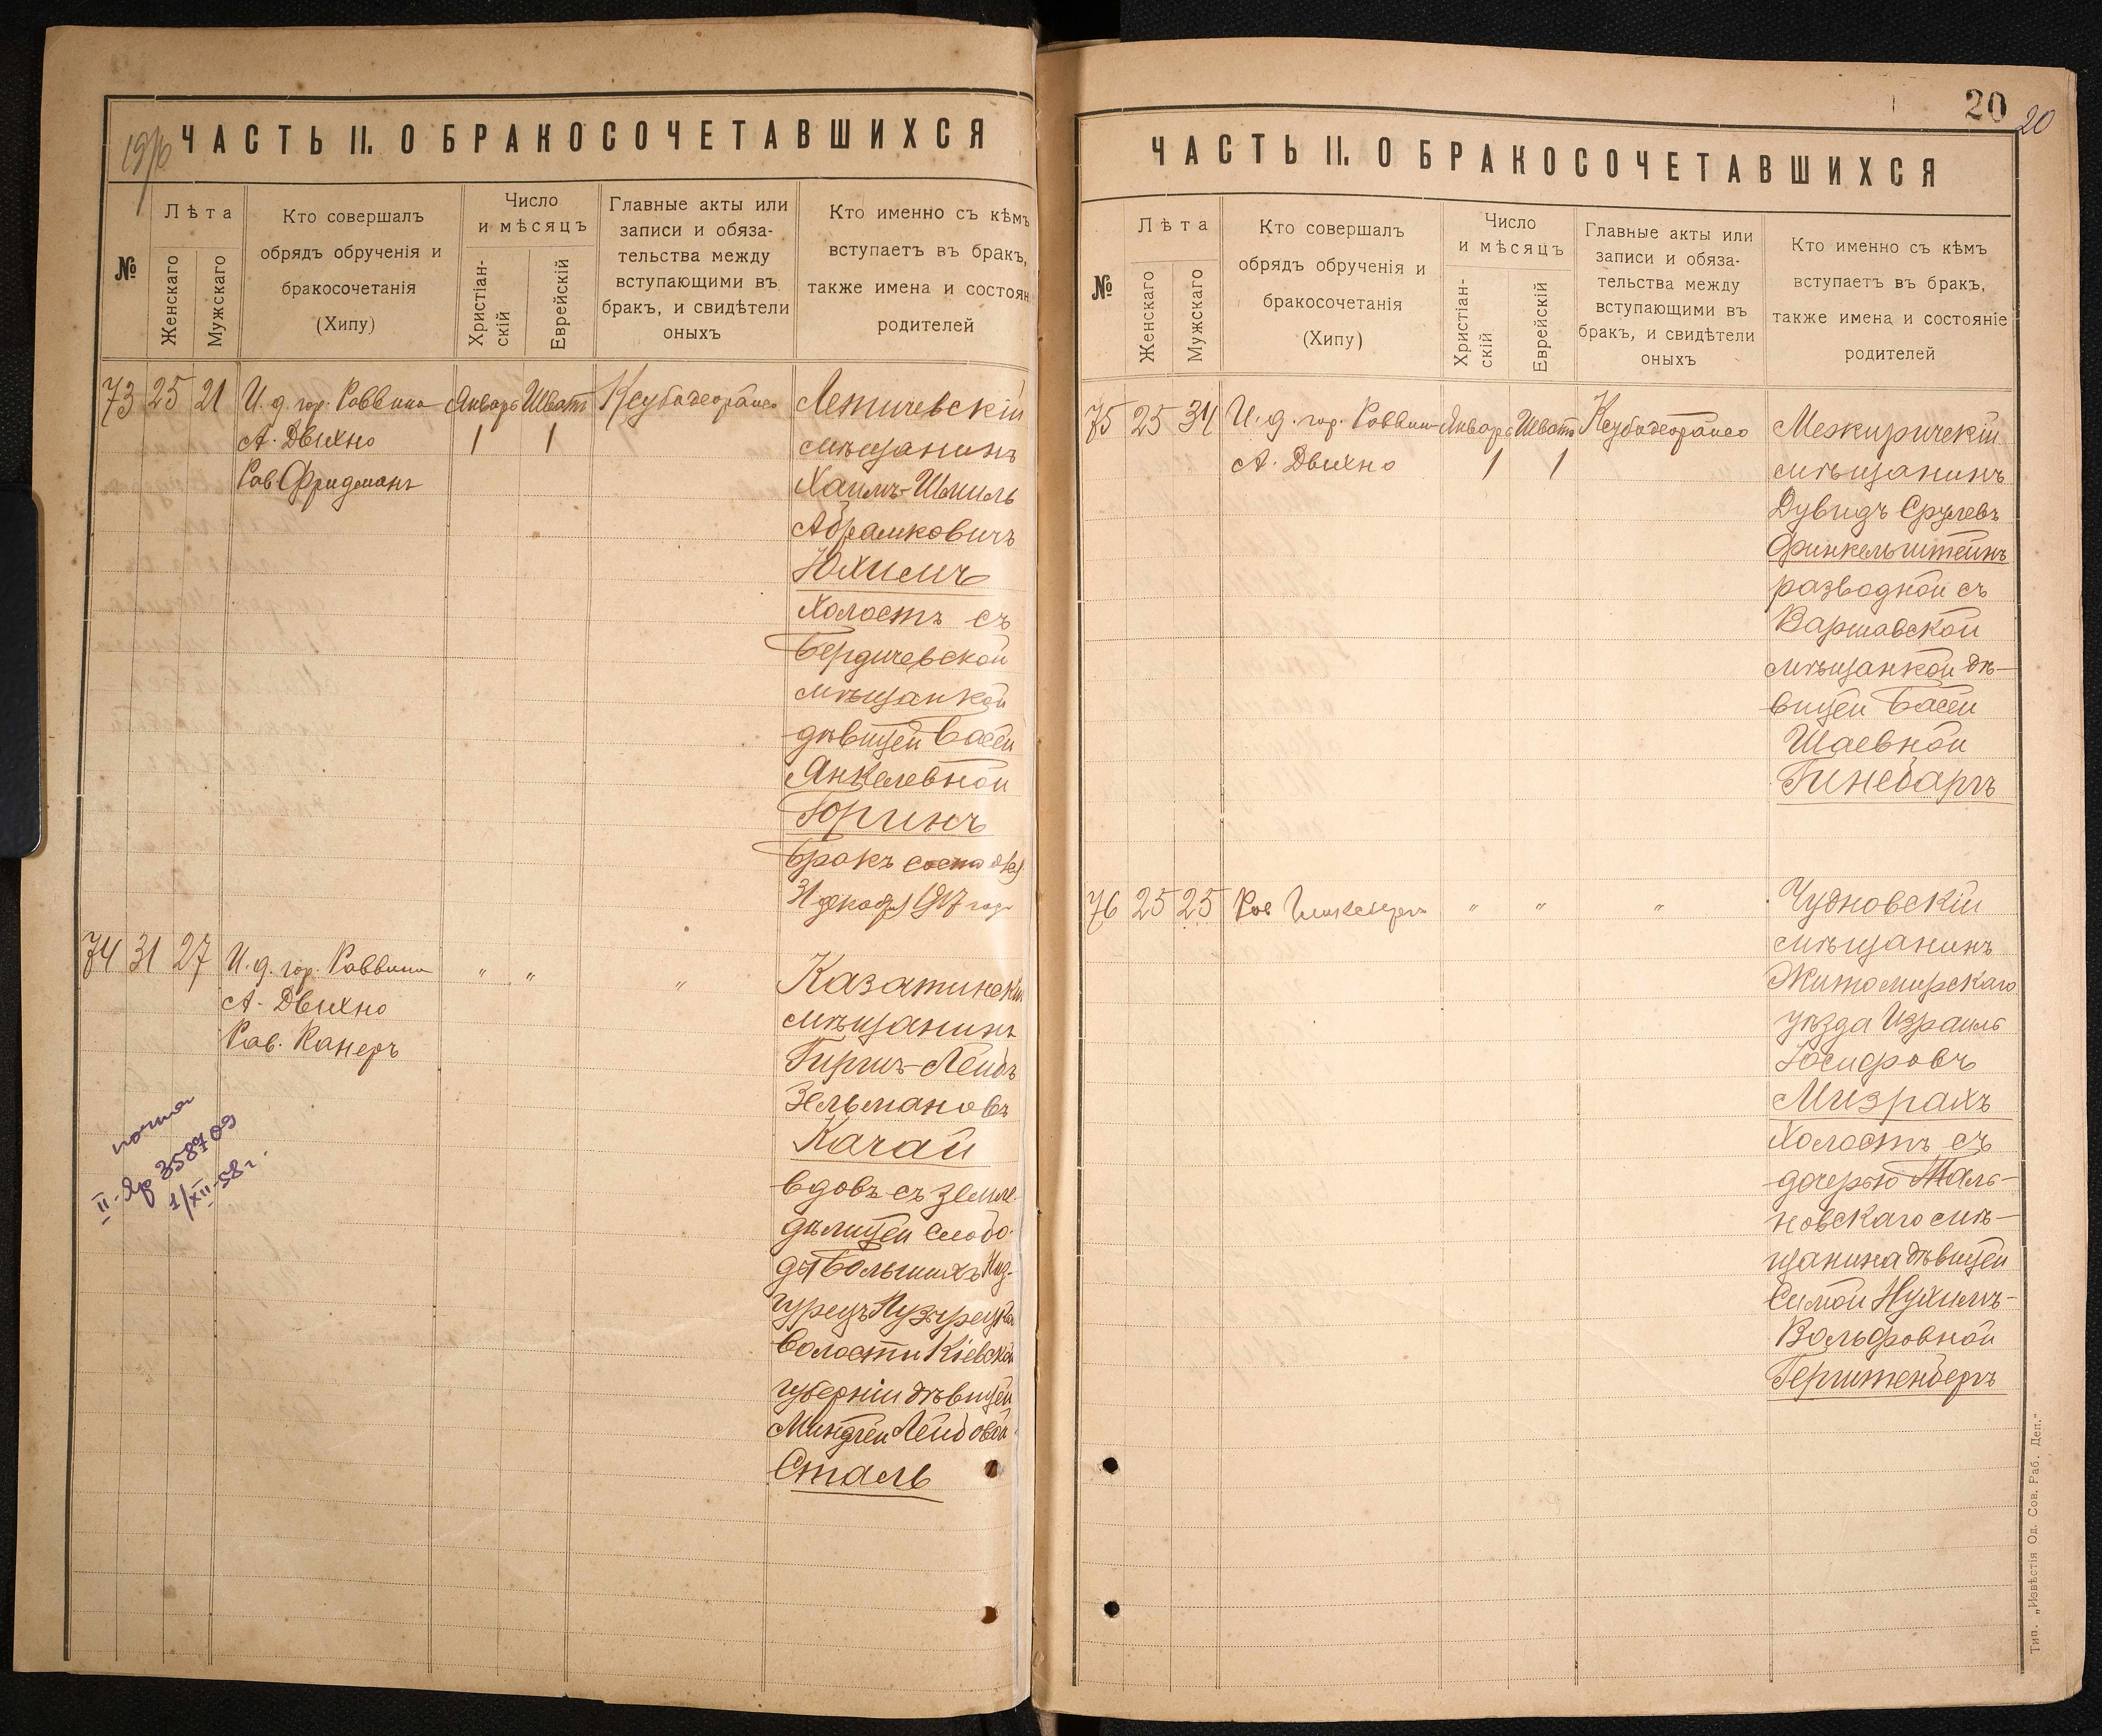 ЧАСТЬ II. О БРАКОСОЧЕТАВШИХСЯ
№
Лѣта
Женскаго
Мужскаго
Кто совершалъ
обрядъ обрученія и
бракосочетанія
(Хипу)
Число
и мѣсяцъ
Христіан-
скій
Еврейскій
Главные акты или
записи и обяза-
тельства между
вступающими въ
бракъ, и свидѣтели
оныхъ
Кто именно съ кѣмъ
вступаетъ въ бракъ,
также имена и состоян
родителей
73 25 21
И. д. гор. Раввина
А. Двихно
Рав Фридманъ
Январь Шватъ
1 1
Летичевскій
мѣщанинъ
Хаимъ-Шмиль
Абрамковичъ
Юхимъ
холостъ съ
Бердичевской
мѣщанкой
дѣвицей Басей
Янкелевной
Горинъ
Бракъ
31 декабря 1917 года
74 31 27
И. д. гор. Раввина
А. Двихно
Рав. Канеръ
" "
"
Казатинскій
мѣщанинъ
Гиршъ-Лейбъ
Зельмановъ
Качай
вдовъ съ земле-
дѣлицей слобо-
ды Большихъ
волости Кіевской
губерніи дѣвицей
Миндлей Лейбовой
Сталь
почта
1/XII-58г.
20
20
ЧАСТЬ II. О БРАКОСОЧЕТАВШИХСЯ
№
Лѣта
Женскаго
Мужскаго
Кто совершалъ
обрядъ обрученія и
бракосочетанія
(Хипу)
Число
и мѣсяцъ
Христіан-
скій
Еврейскій
Главные акты или
записи и обяза-
тельства между
вступающими въ
бракъ, и свидѣтели
оныхъ
Кто именно съ кѣмъ
вступаетъ въ бракъ,
также имена и состояніе
родителей
75 25 34
И. д. гор. Раввина
А. Двихно
Январь Шватъ
1 1
Межиричскій
мѣщанинъ
Дувидъ Срулевъ
Финкельштейнъ
разводной съ
Варшавской
мѣщанкой дѣ-
вицей Басей
Шаевной
Гинсбаргъ
76 25 25
Рав
" "
"
Чудновскій
мѣщанинъ
Житомирскаго
уѣзда Израиль
Іосифовъ
Мизрахъ
холостъ съ
дочерью Таль-
новскаго мѣ-
щанина дѣвицей
Симой Нухимъ-
Вольфовной
Герштенбергъ
Тип. „Извѣстія Од. Сов. Раб. Деп."